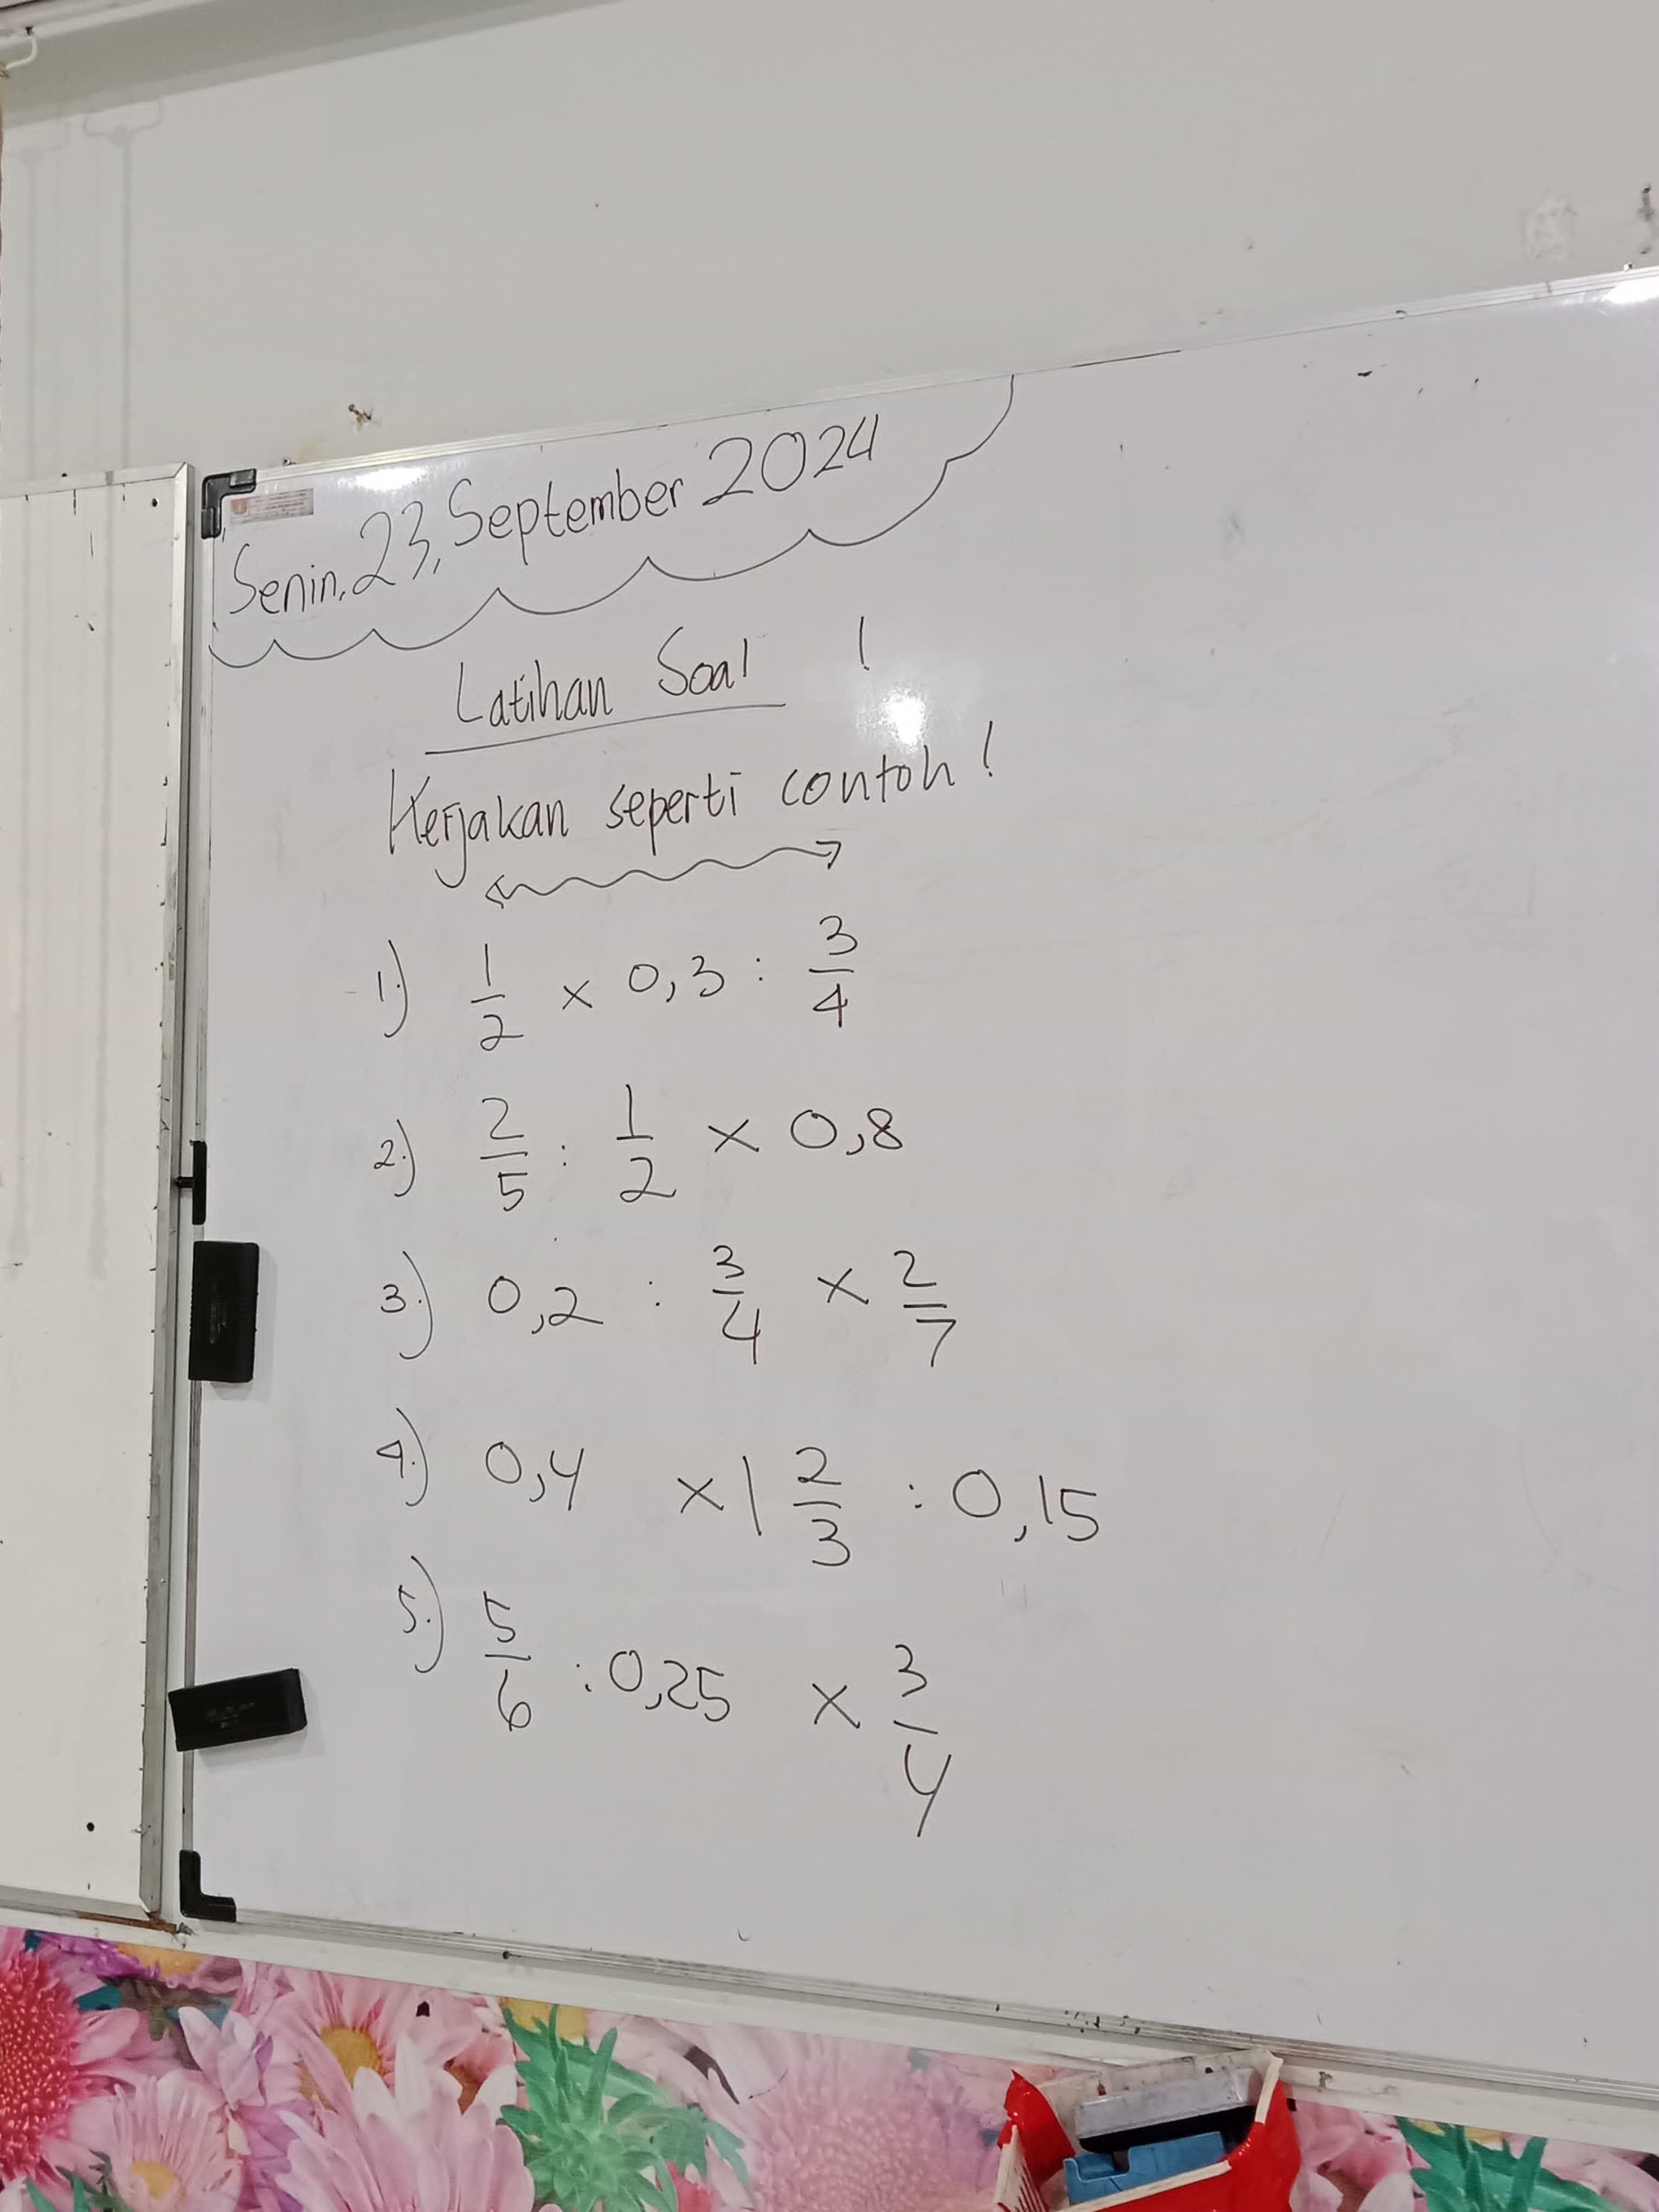 Senin, 23, September 2024
Latihan Soal !
Kerjakan seperti contoh !
1.) 1/2 × 0,3 : 3/4
2.) 2/5 : 1/2 × 0,8
3.) 0,2 : 3/4 × 2/7
4.) 0,4 × 1 2/3 : 0,15
5.) 5/6 : 0,25 × 3/4